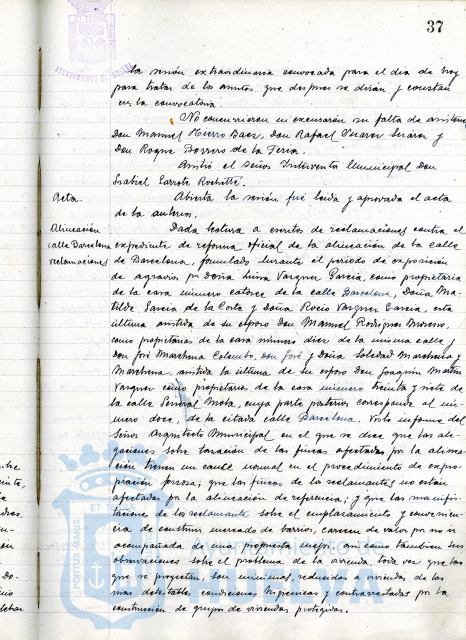 37
la sesión extraordinaria convocada para el dia de hoy
para tratar de los asuntos que despues se dirán y constan
en la convocatoria.
No concurrieron ni excusaron su falta de asistencia
Don Manuel Báez, Don Rafael Suárez Suárez y
Don Roque Borrero de la Feria.
Asistió el Señor Interventor Municipal Don
Garrote
Acta.
Abierta la sesión fué leida y aprobada el acta
de la anterior.
Alineación
calle Barcelona
reclamaciones
Dada lectura a escritos de reclamaciones contra el
expediente de reforma oficial de la alineación de la calle
de Barcelona, formulado durante el período de exposición
de agravios por Doña Luisa Vazquez García, como propietaria
de la casa número catorce de la calle Barcelona, Doña Ma-
tilde García de la Corte y Doña Rocío Vazquez García, esta
última asistida de su esposo Don Manuel Rodríguez Moreno,
como propietarias de la casa número diez de la misma calle y
Don José Marchena Colombo, don José y Doña Soledad Marchena y
Marchena, asistida la última de su esposo Don Joaquín Martín
Vazquez como propietarios de la casa número treinta y siete de
la calle General Mola, cuya parte posterior corresponde al nú-
mero doce, de la citada calle Barcelona. Visto informe del
Señor Arquitecto Municipal en el que se dice que las ale-
gaciones sobre tasación de las fincas afectadas por la alinea-
ción tienen un cauce normal en el procedimiento de expro-
piación forzosa; que las fincas de los reclamantes no están
afectadas por la alineación de referencia; y que las manifes-
taciones de los reclamantes sobre el emplazamiento y convenien-
cia de construir mercado de barrios, carecen de valor por no ir
acompañada de una propuesta mejor, asi como tambien sus
observaciones sobre el problema de la vivienda, toda vez que las
que se proyectan, son minimas, reducidas a viviendas de las
mas detestables condiciones higienicas y contrarrestadas por la
construcción de grupo de viviendas protegidas.
Ayuntamiento de
HUELVA
PORTUS MARIS ET